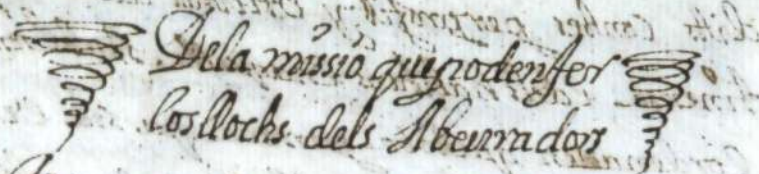 Dela missió quey poden fer
los llochs dels Abeurradors